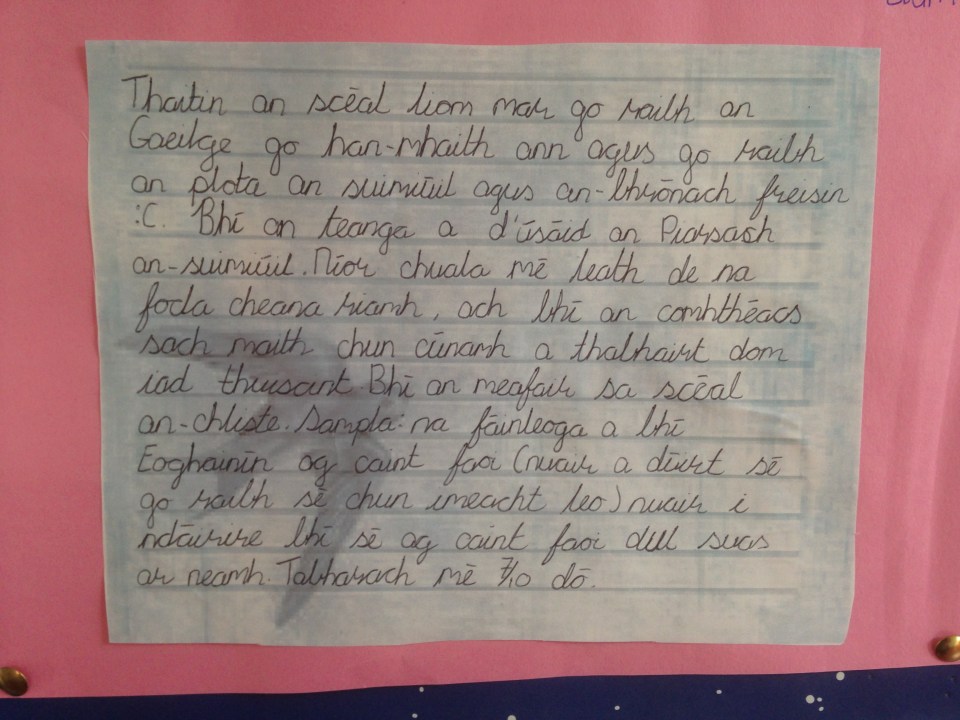 Thaitin an scéal liom mar go raibh an
Gaeilge go han-mhaith ann agus go raibh
an plota an suimiúil agus an-bhrónach freisin
:C. Bhí an teanga a d'úsáid an Piarsach
an-suimiúil. Níor chuala mé leath de na
focla cheana riamh, ach bhí an comhthéacs
sach maith chun cúnamh a thabhairt dom
iad thuiscint. Bhí an meafair sa scéal
an-chliste. Sampla: na fáinleoga a bhí
Eoghainín ag caint faoi (nuair a dúirt sé
go raibh sé chun imeacht leo) nuair i
ndáirire bhí sé ag caint faoi dul suas
ar neamh. Tabharach mé 7/10 dó.